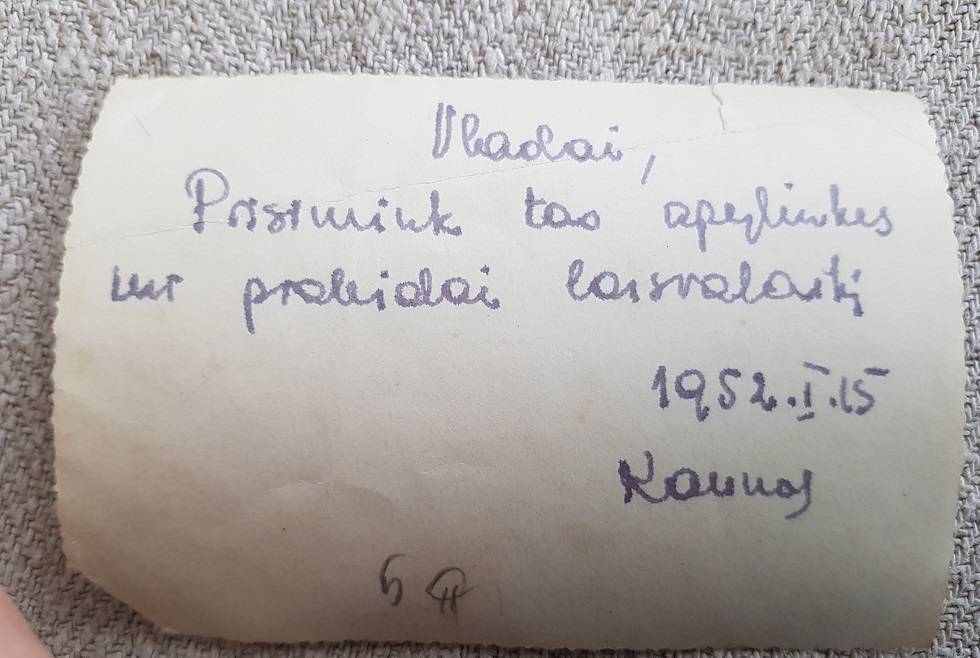 Vladai,
Prisimink tas apylinkes
kur praleidai laisvalaikį
1952.I.15
Kaunas